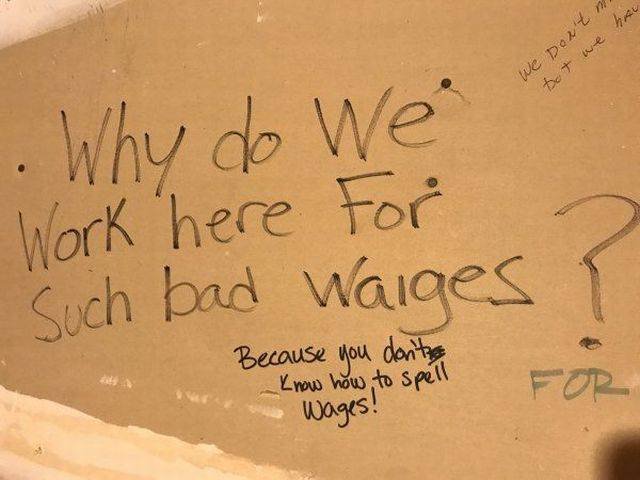 We Don't
bot we
Why do We
Work here For
Such bad Waiges ?
Because you don't
Know how to spell
Wages!
FOR